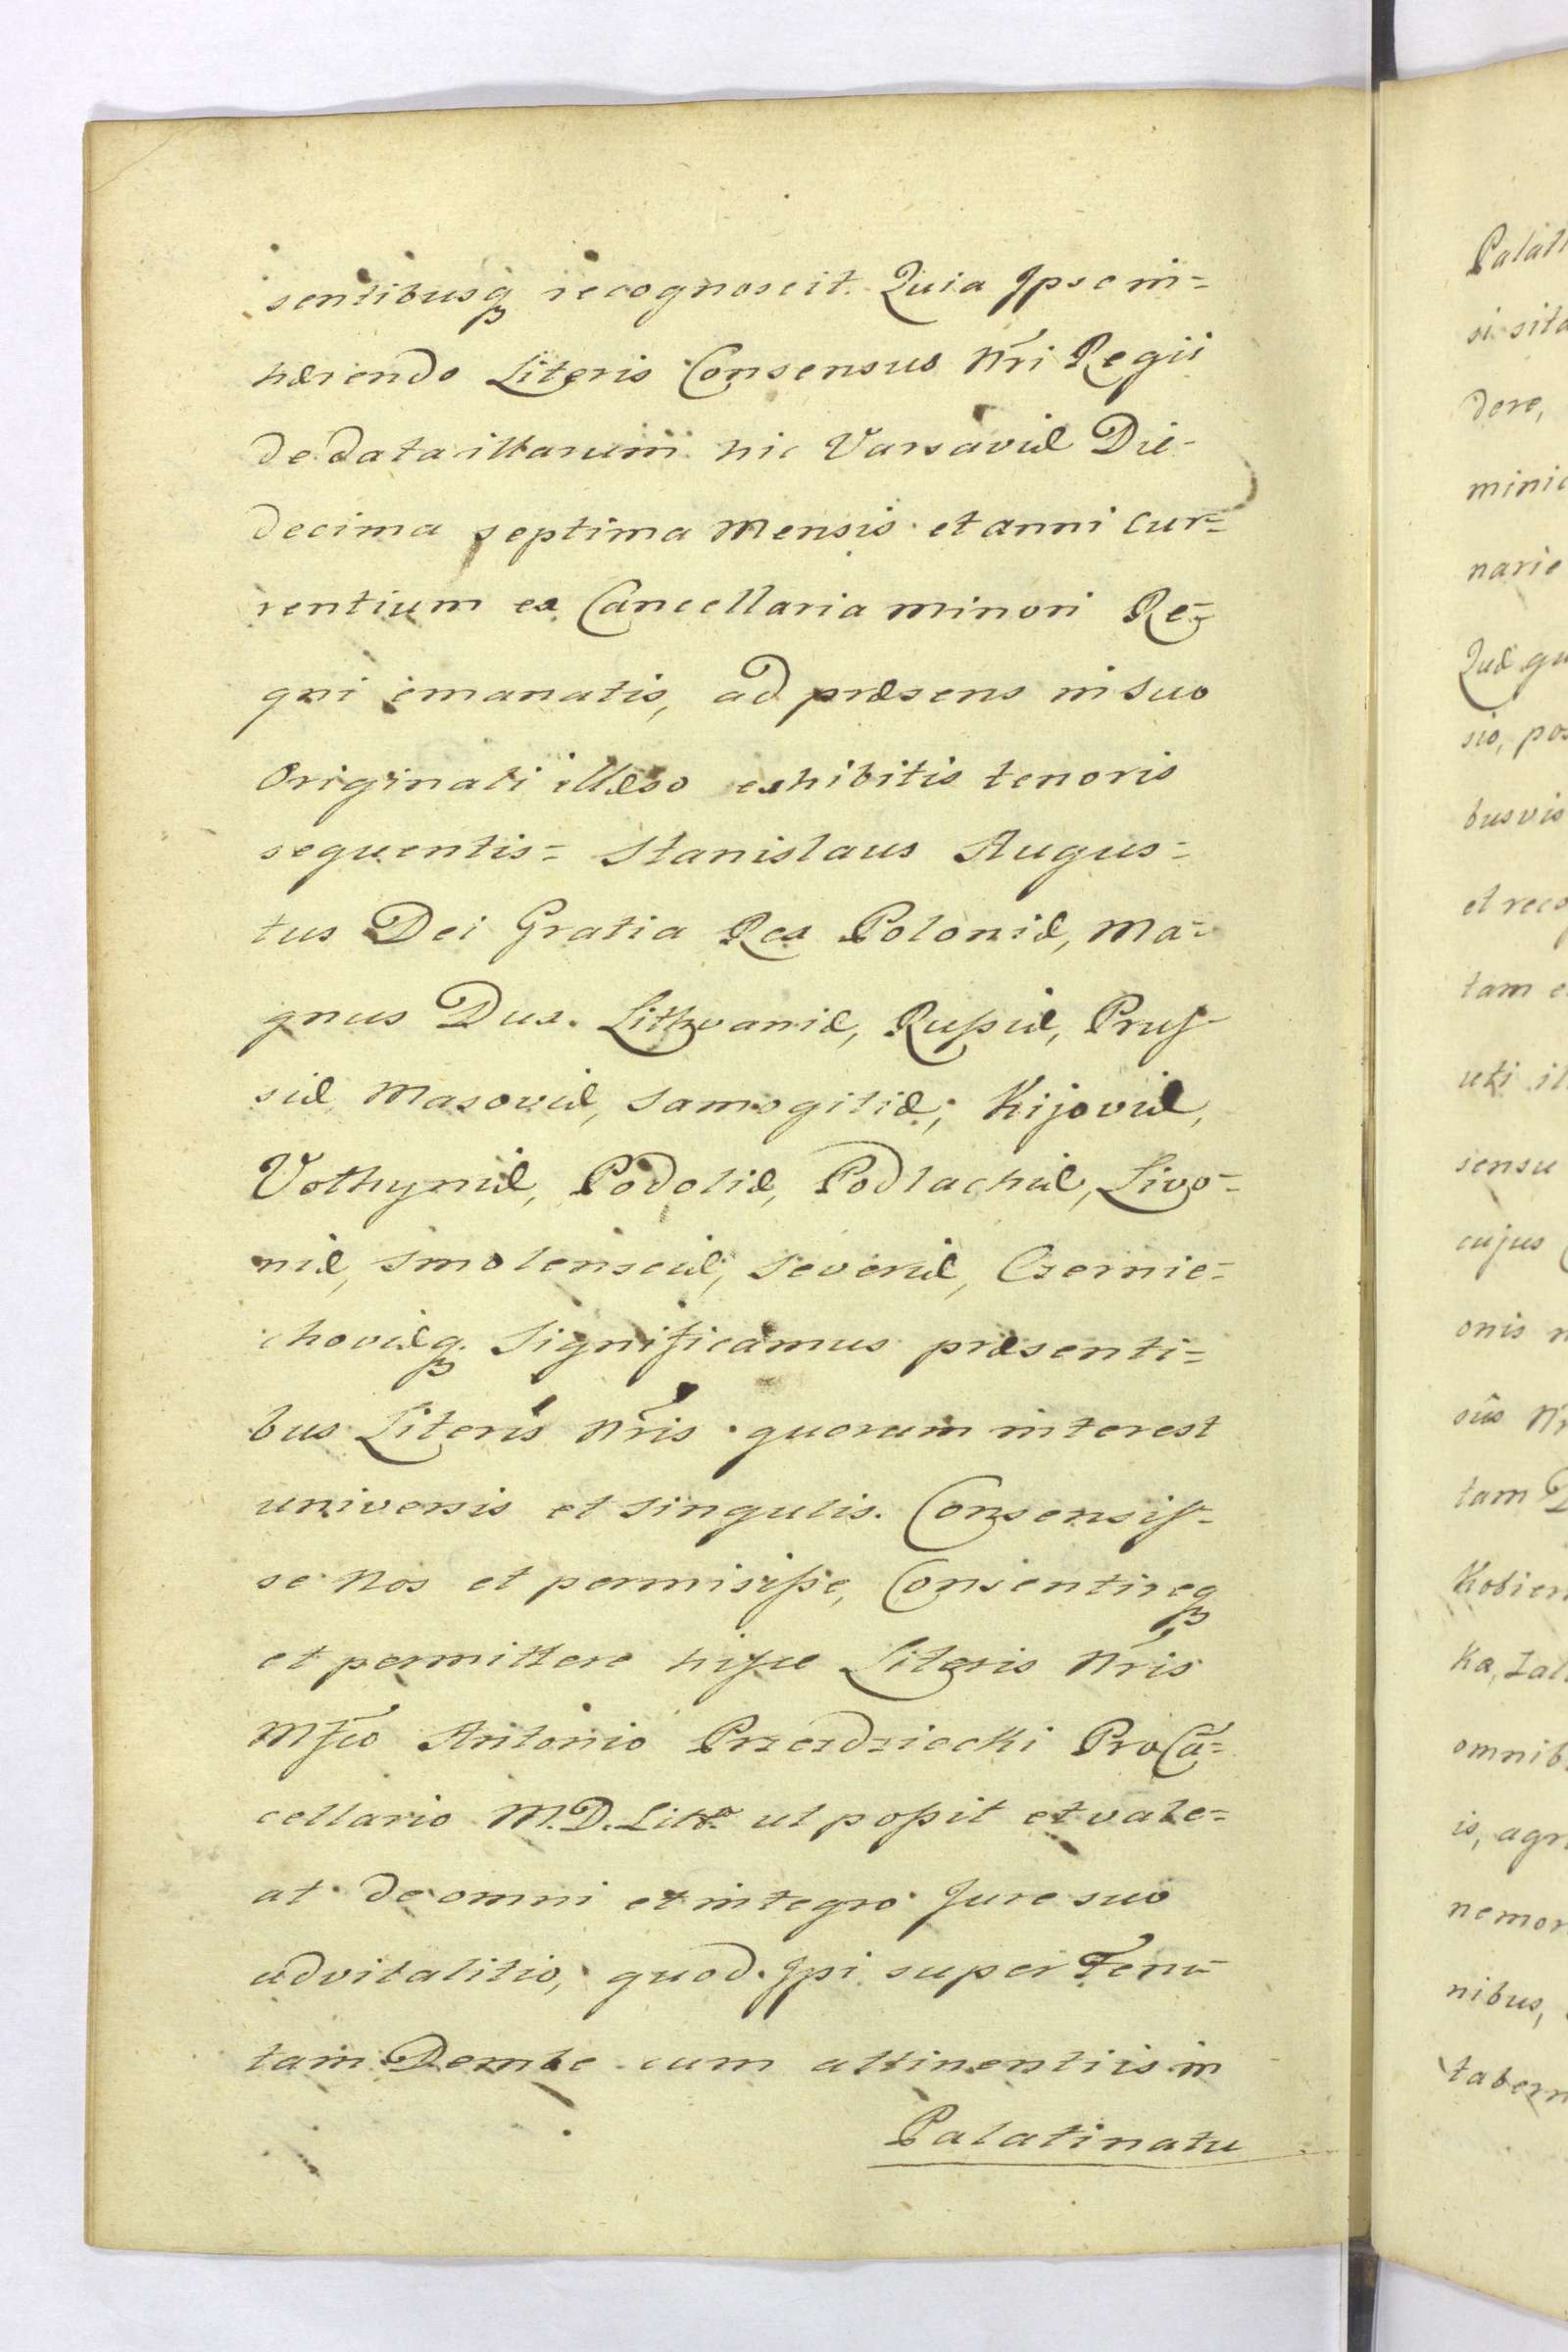 sentibusq₃ recognoscit. Quia Ipse in=
hærendo Literis Consensus Nr̃i Regii
de data illarum hic Varsaviæ Die
decima septima Mensis et anni cur=
rentium ex Cancellaria Minori Re=
gni emanatis, ad præsens in suo
Originali illæso exhibitis tenoris
sequentis= Stanislaus Augus=
tus Dei Gratia Rex Poloniæ, Ma=
gnus Dux Lithvaniæ, Rußiæ, Prus=
siæ Masoviæ, Samogitiæ, Kijoviæ,
Volhyniæ, Podoliæ, Podlachiæ, Livo=
niæ, Smolensciæ, Severiæ, Czernie=
choviæq₃ Significamus præsenti=
bus Literis Nr̃is quorum interest
universis et singulis. Consensis=
se Nos et permisiße, Consentireq₃
et permittere hisce Literis Nr̃is
Mfco Antonio Przezdziecki ProCã=
cellario M.D.Litt ut poßit et vale=
at de omni et integro Jure suo
advitalitio, quod Ipi super Tenu=
tam Dembe cum attinentiis in
Palatinatu
Palati
si sita
dere,
nario
Quæ
sio,
busvis
tam
uti
sensu
cujus
onis
tam
Ka,
is,
nibus,